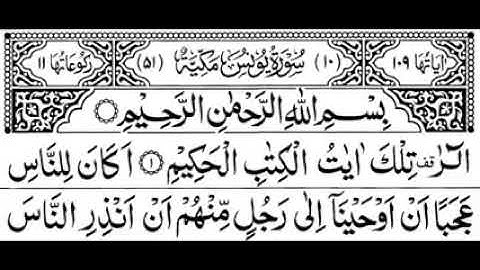 اٰیَاتُهَا ١٠٩ (١٠) سُوْرَةُ يُوْنُسَ مَكِّيَّةٌ (٥١) رُكُوْعَاتُهَا ١١
بِسْمِ اللّٰهِ الرَّحْمٰنِ الرَّحِيْمِ
الٓرٰ قف تِلْكَ اٰيٰتُ الْكِتٰبِ الْحَكِيْمِ ١ اَكَانَ لِلنَّاسِ
عَجَبًا اَنْ اَوْحَيْنَآ اِلٰى رَجُلٍ مِّنْهُمْ اَنْ اَنْذِرِ النَّاسَ